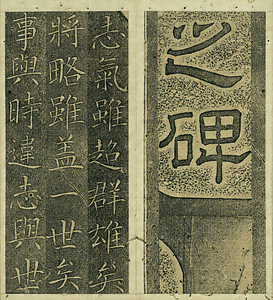 之碑
志氣雖超群雄矣
將略雖蓋一世矣
事與時違志與世